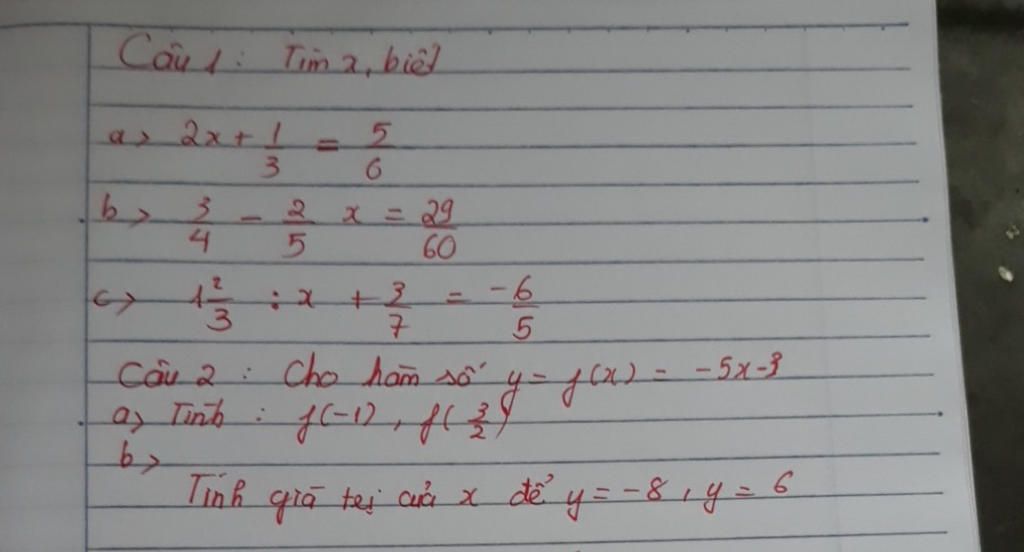 Câu 1: Tìm x, biết
a> 2x + 1/3 = 5/6
b> 3/4 - 2/5 x = 29/60
c> 1 2/3 : x + 3/7 = -6/5
Câu 2: Cho hàm số y = f(x) = -5x-3
a> Tính: f(-1), f(3/2)
b>
Tính giá trị của x để y = -8, y = 6